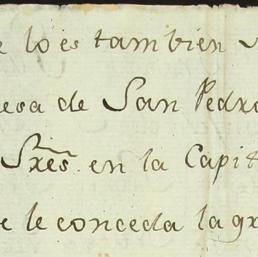 e lo es tambien
esa de San Pedro
Sres en la Capit
e le conceda la gr